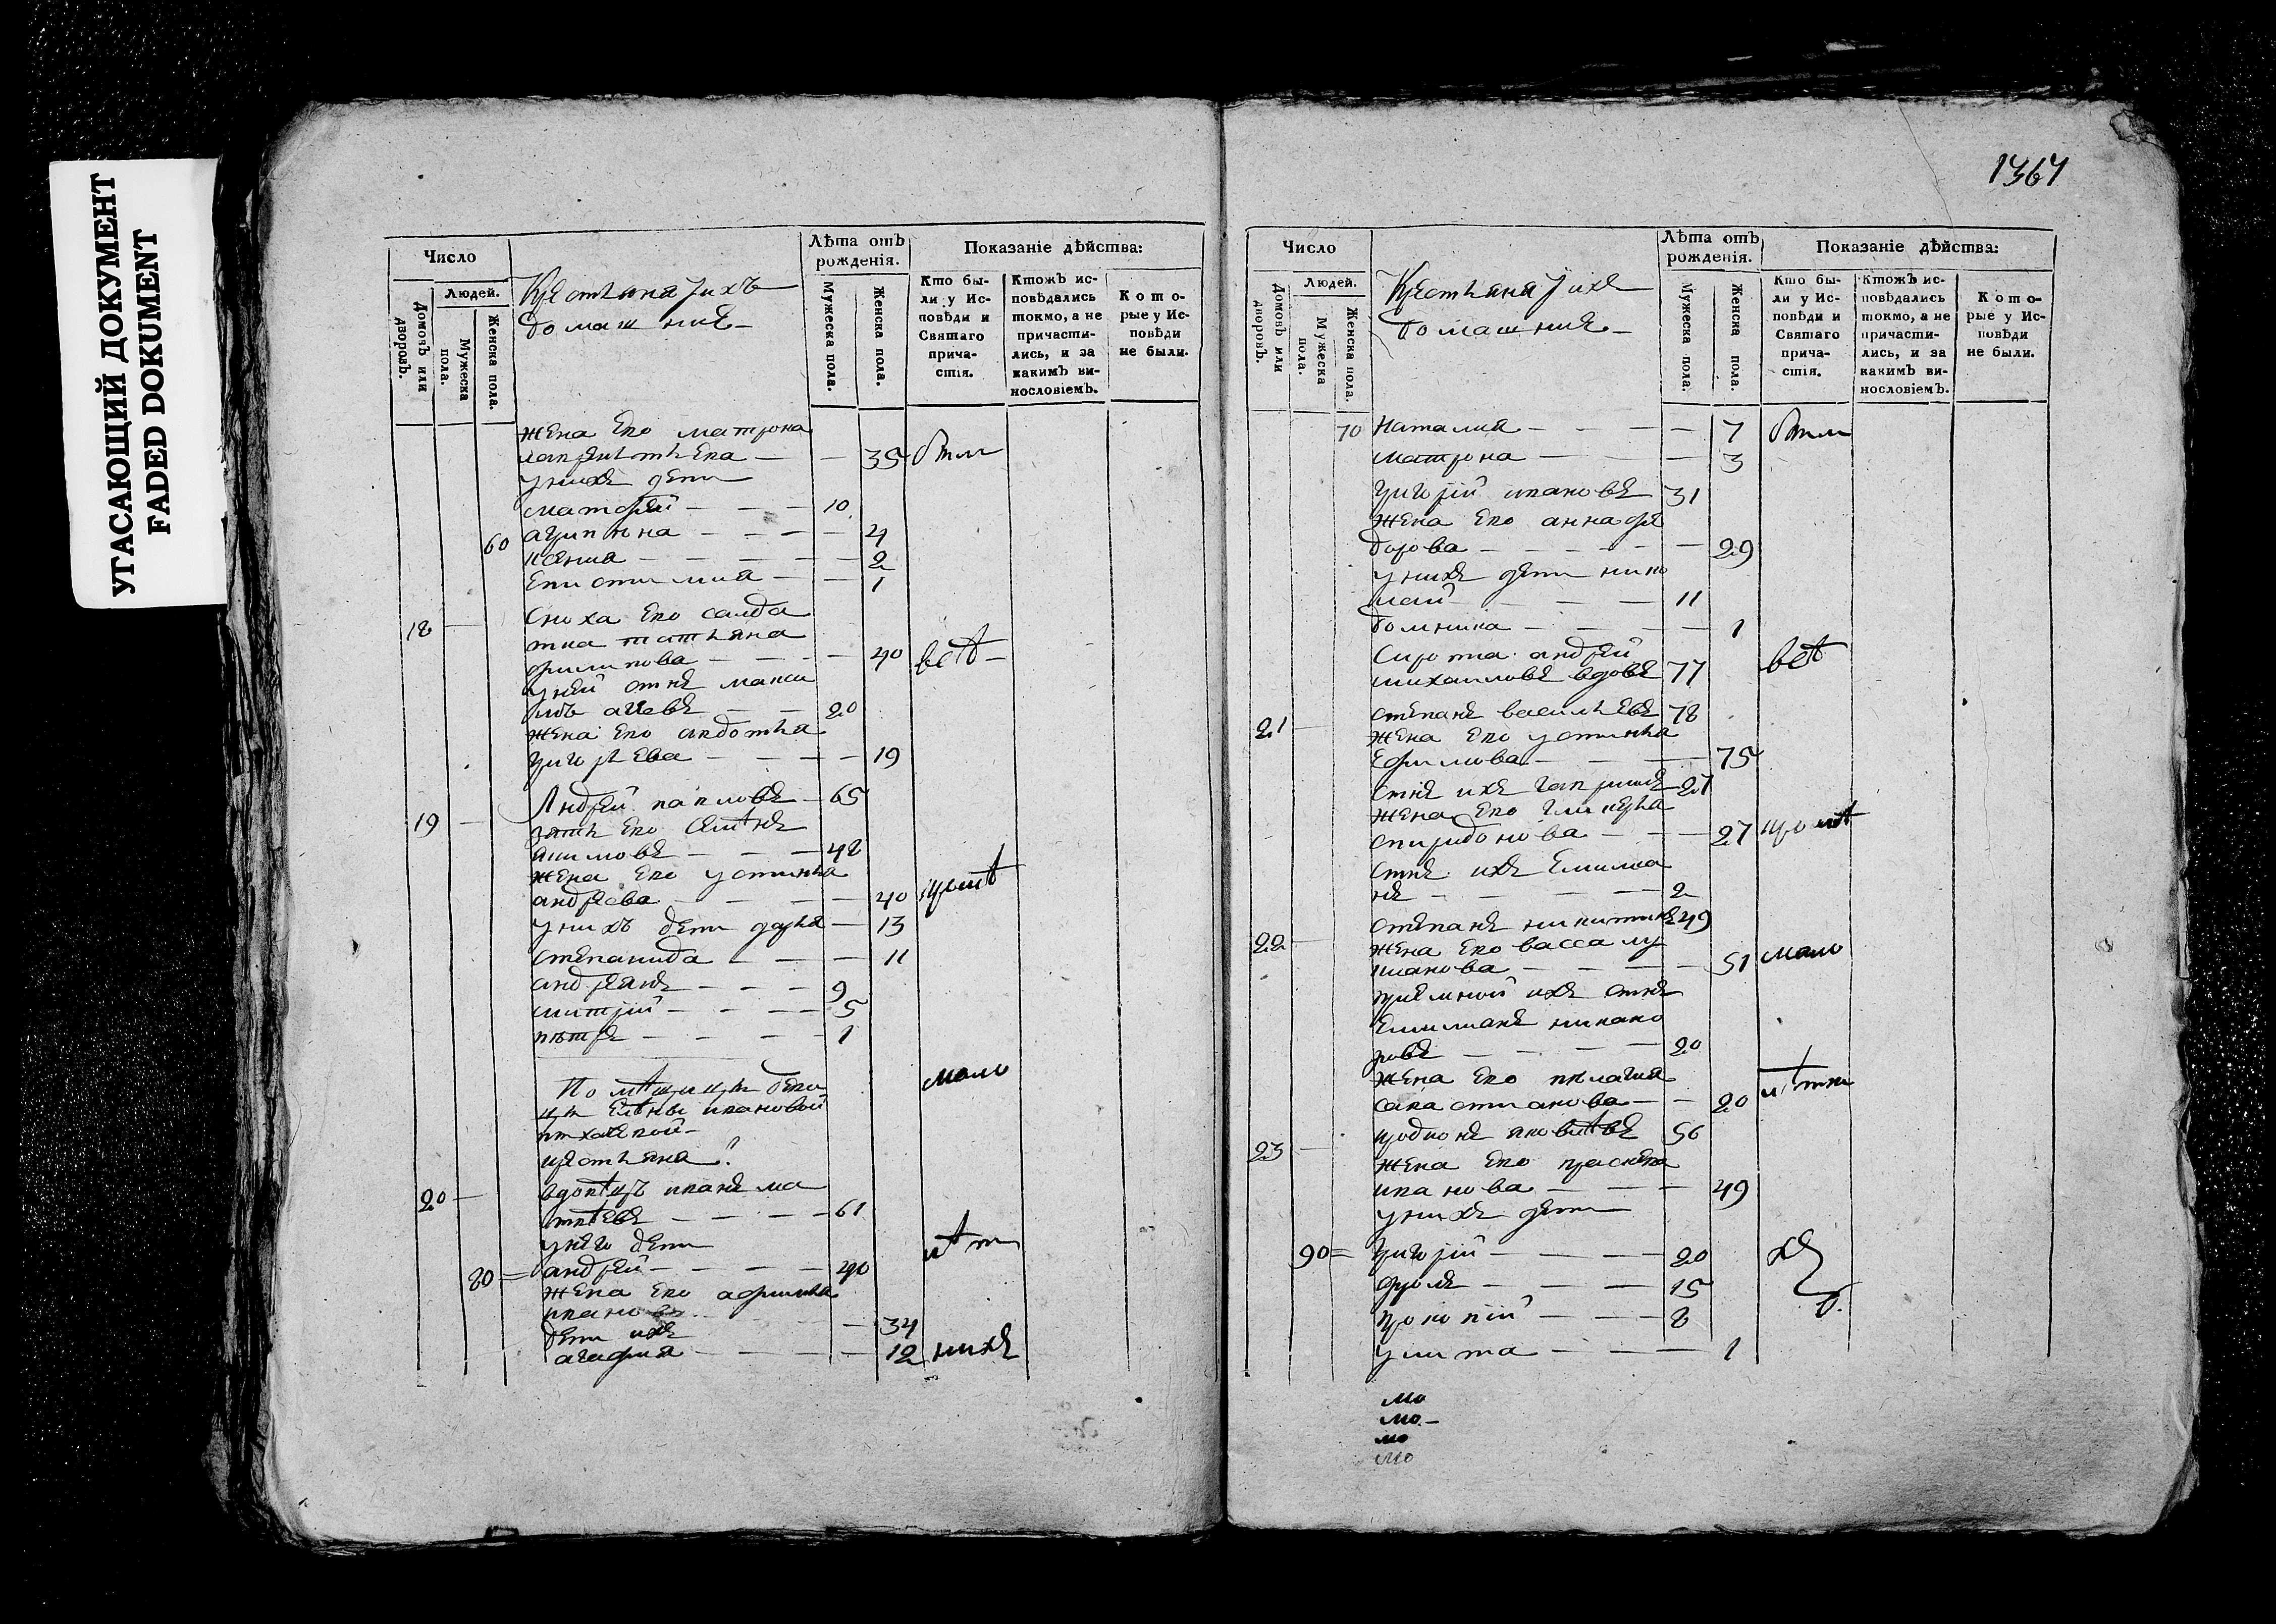 УГАСАЮЩИЙ ДОКУМЕНТ
FADED DOKUMENT
Число
Людей.
Домовъ или дворовъ.
Мужеска пола.
Женска пола.
Крестьяна јихъ
домашние
Лѣта отъ рожденія.
Мужеска пола.
Женска пола.
Показаніе дѣйства:
Кто были у Исповѣди и Святаго причастія.
Ктожъ исповѣдались токмо, а не причастились, и за какимъ винословіемъ.
Которые у Исповѣди не были.
жена ево матрона
35
у нихъ дети
матфей 10
60 агрипина 4
ксения 2
епистимия 1
18 сноха ево салда
тка татьяна
филипова 40 всѣ
у ней сынъ макси
мъ 20
жена ево авдотья
григорьева 19
19 Андрей павловъ 65
зять ево семѣнъ
акимовъ 48
жена ево устинья
андреева 40
у нихъ дети дарья 13
степанида 11
андреянъ 9
митрій 5
петръ 1
мало
Помѣщицы деви
цы елѣны ивановой
крестьяна
20 вдовѣцъ иванъ ма
твѣевъ 61
у него дети
80 андрей 40 лѣтн
жена ево афимья
иванова 34
дети ихъ
агафия 12 нихъ
1367
Число
Людей.
Домовъ или дворовъ.
Мужеска пола.
Женска пола.
Крестьяна јихъ
домашние
Лѣта отъ рожденія.
Мужеска пола.
Женска пола.
Показаніе дѣйства:
Кто были у Исповѣди и Святаго причастія.
Ктожъ исповѣдались токмо, а не причастились, и за какимъ винословіемъ.
Которые у Исповѣди не были.
70 Наталия 7
матрона 3
григорій ивановъ 31
жена ево анна фе
дорова 29
у нихъ дети нико
лай 11
домника 1
сирота андрей
михаиловъ вдовъ 77 всѣ
21 степанъ васильевъ 78
жена ево устинья
ефимова 75
сынъ ихъ гаврилъ 27
жена ево гликерья
спиридонова 27 кромѣ
сынъ ихъ емилиа
нъ 2
22 степанъ никитинъ 49
жена ево васса лу
киянова 51 мало
приемной ихъ сынъ
емилианъ никано
ровъ 20
жена ево пелагия
савастианова 20 лѣтн
23 родионъ яковлѣвъ 56
жена ево прасковя
иванова 49
у нихъ дети
90 григорій 20 хъ
фролъ 15
прокопій 8
улита 1
мо
мо
мо
мо